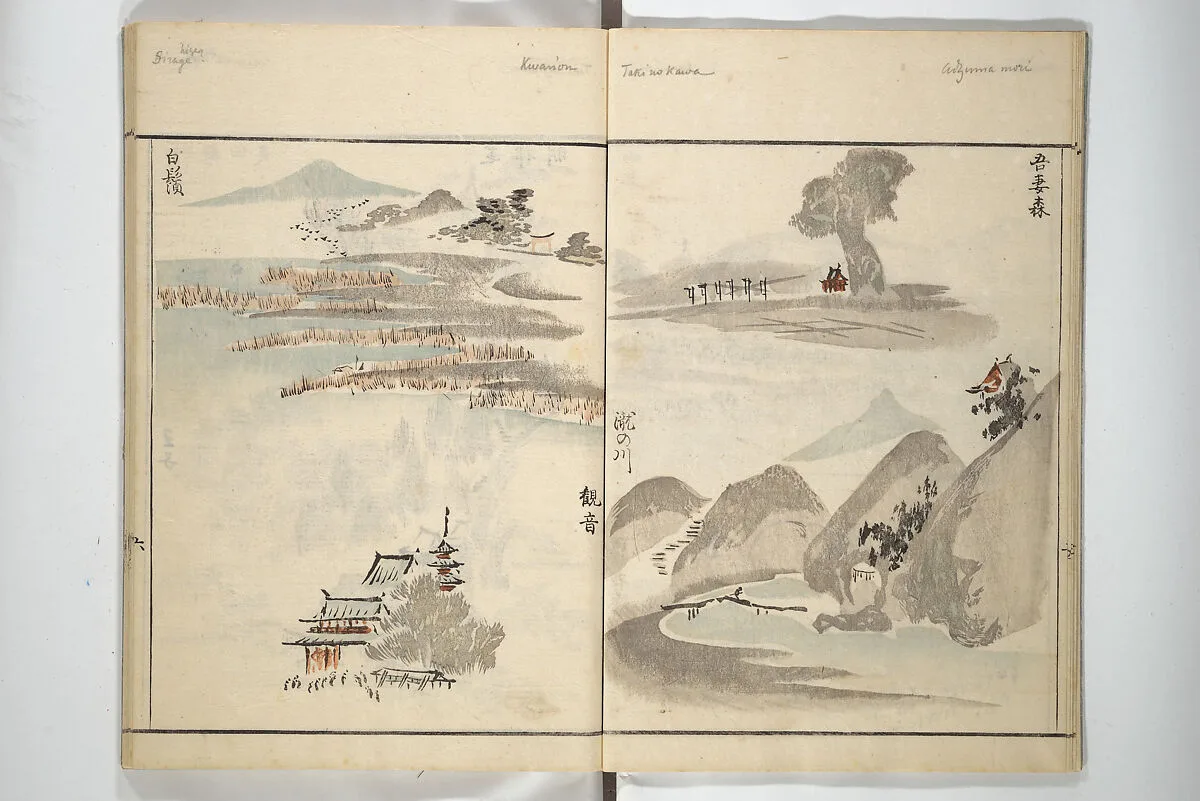 Kwan'on
Taki no Kawa
Adzuma mori
吾妻森
瀧の川
白鬚
観音
六